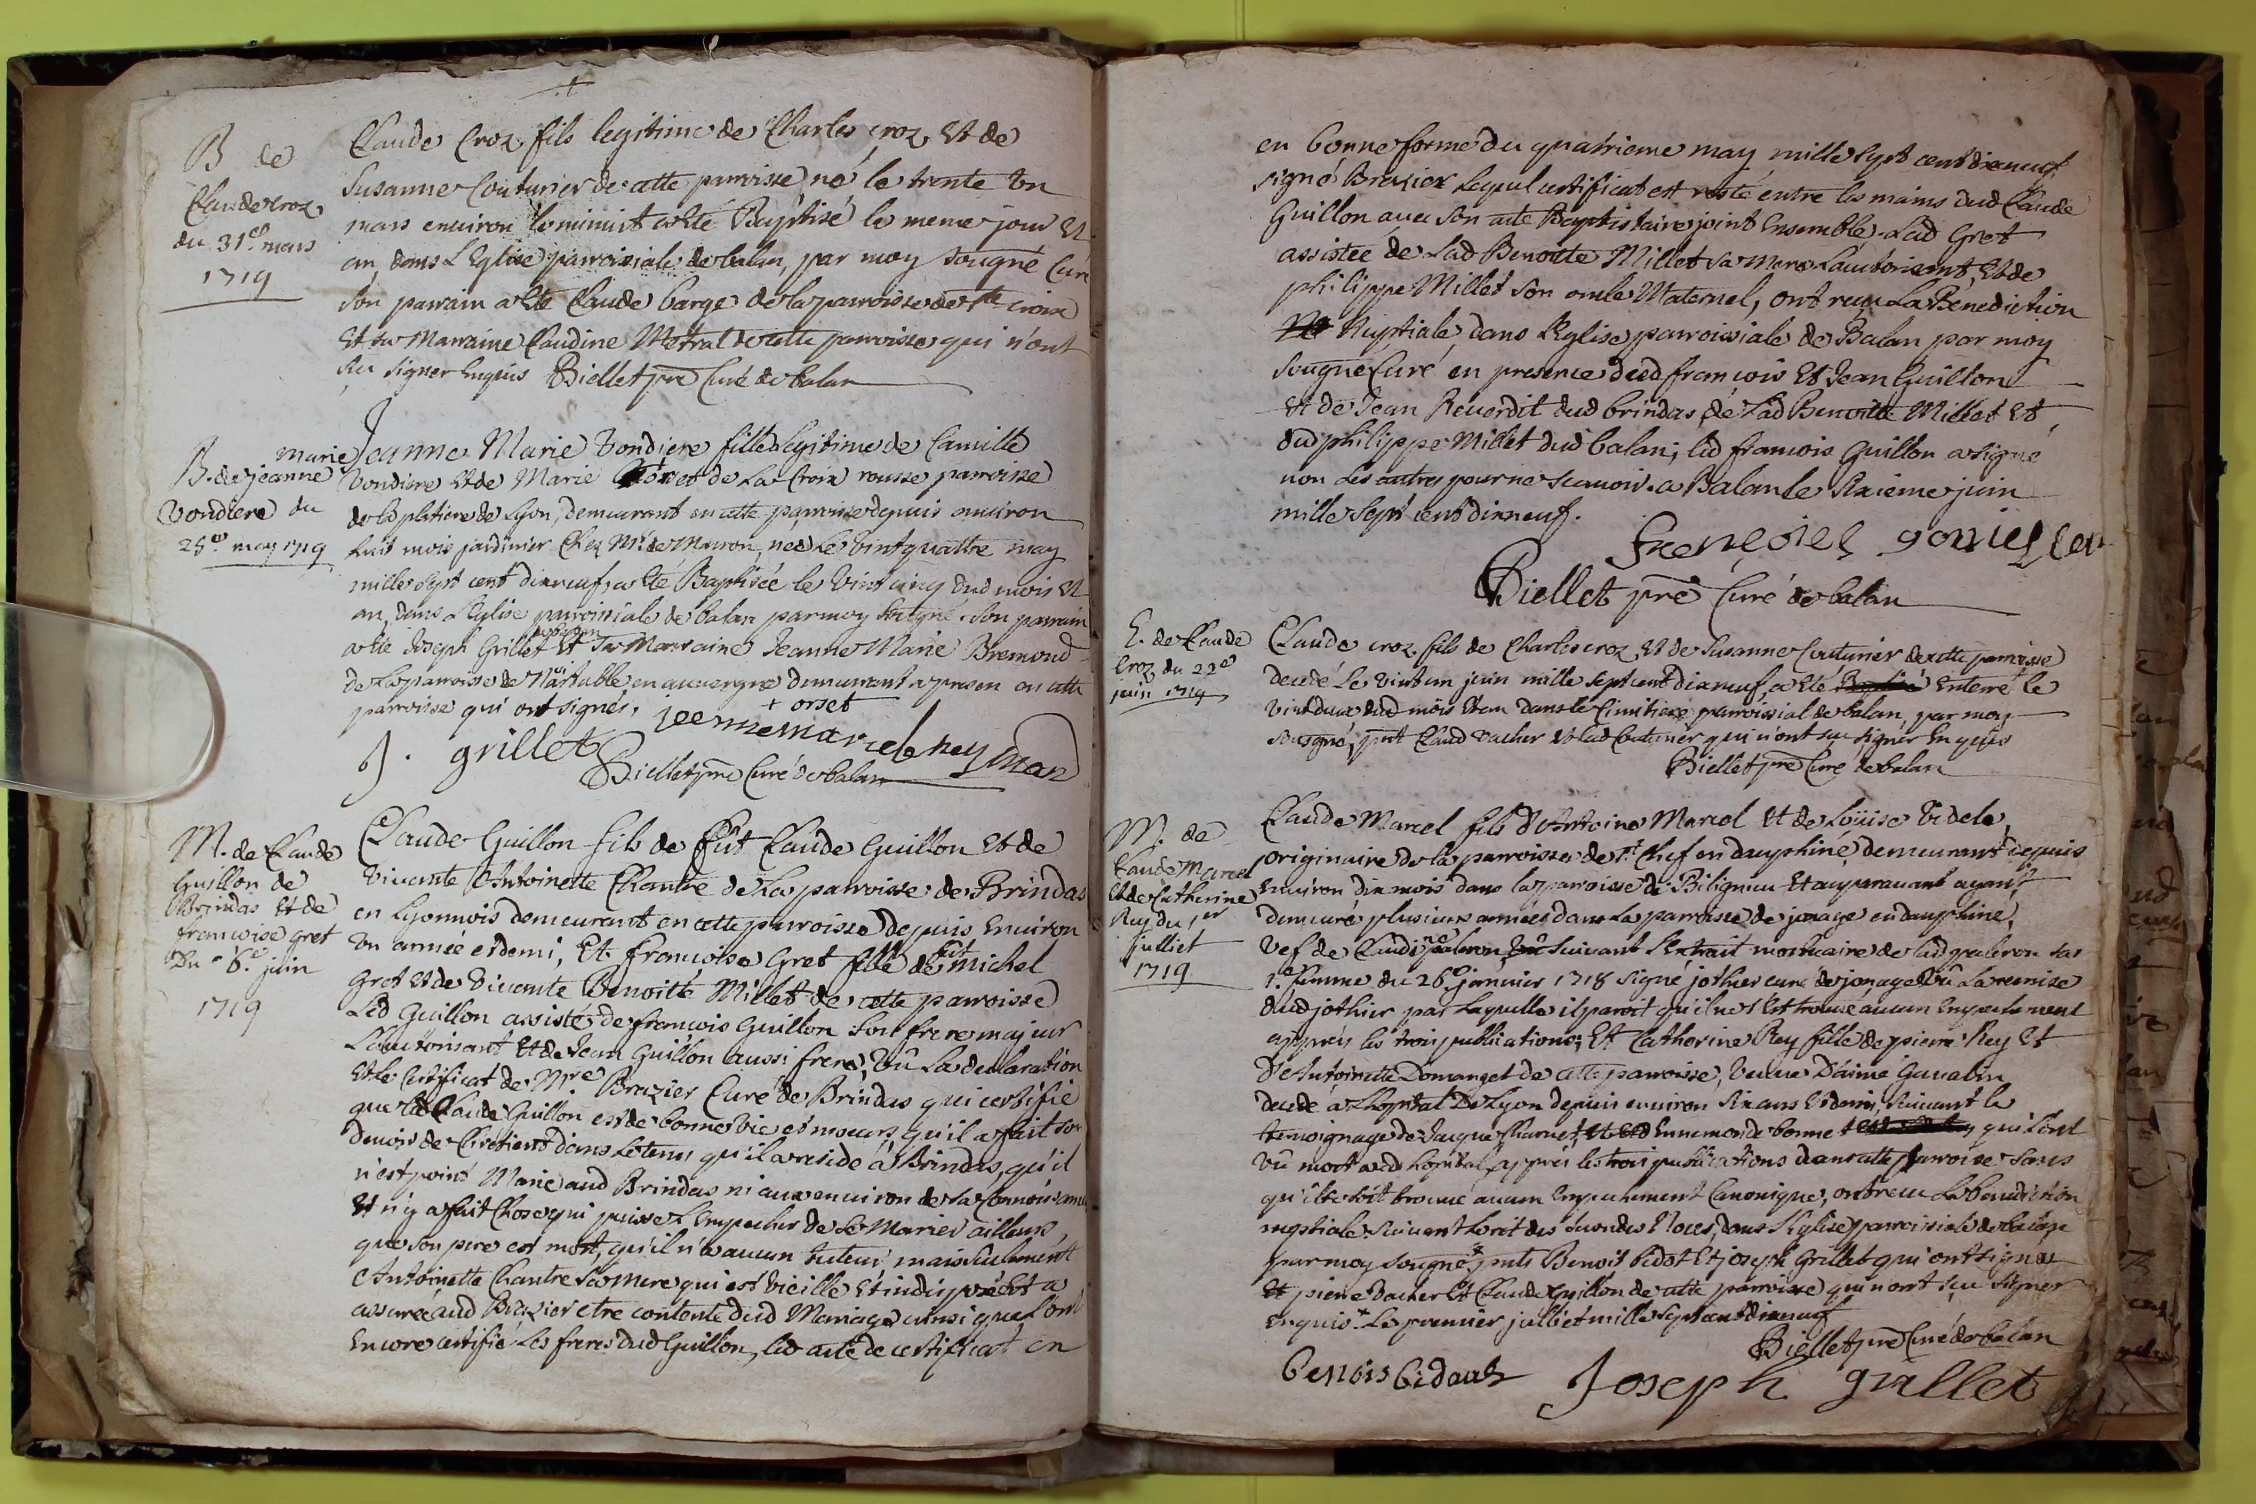 B de
Claude croz
du 31e mars
1719
Claude Croz fils legitime de Charles croz Et de
Susanne Couturier de cette parroisse né le trente Un
mars environ le minuit a Eté Baptisé le meme jour Et
an dans L'Eglise parroissiale de balan, par moy sougné Curé
Son parrain a Eté Claude barge de la parroisse de Ste croix
Et sa Marraine Claudine Metral de cette parroisse qui n'ont
sçu signer Enquis Biellet pre Curé de balan
B. de jeanne marie
Vondiere du
25e may 1719
Jeanne Marie Vondiere fille Legitime de Camille
Vondiere Et de Marie de La Croix rousse parroisse
de la platiere de Lyon, demeurant en cette parroisse depuis environ
huit mois jardinier Chez Mr de Meuron, née Le Vint quattre may
mille sept cent dixneuf, a Eté Baptisée le Vint cinq dud mois Et
an, dans L'Eglise parroissiale de balan par moy soutgné. Son parrain
a Eté Joseph Grillet Et Sa Marraine Jeanne Marie Bremond
de La parroisse de en auvergne demeurant a present en cette
parroisse qui ont signés. + orset
J. grillet
Biellet pre Curé de balan
M. de Claude
Guillon de
Brindas Et de
francoise gret
Du 6e juin
1719
Claude Guillon fils de fût Claude Guillon Et de
Vivente Antoinette Chantre de La parroisse de Brindas
en Lyonnois demeurant en cette parroisse depuis Environ
Un année et demi, Et francoise Gret fille de fut Michel
Gret Et de Vivente Benoitte Millet de cette parroisse
Led Guillon assisté de francois Guillon Son frere majeur
L'autorisant Et de Jean Guillon aussi frere, Vû La declaration
Et le Certificat de Mre Brazier Curé de Brindas qui certifie
que led Claude Guillon est de bonne Vie et moeurs, qu'il a fait son
devoir de Chretient dans Le tems qu'il a residé a Brindas, qu'il
n'est point Marié aud Brindas ni aux environ de sa Connoissance
Et n'y a fait Chose qui puisse L'Empecher de Se Marier ailleurs
que son pere est mort, qu'il n'a aucun tuteur mais seulement
Antoinette Chantre Sa Mere qui est Vieille Et indisposée Et a
assurée aud Brazier etre contente dud Mariage ainsi que L'ont
Encore certifié Les freres dud Guillon, led acte de certificat en
en bonne forme du quatrieme may mille sept cent dixneuf
signé Brazier Lequel certificat est resté entre les mains dud Claude
Guillon avec Son acte Baptistaire joint Ensemble. Lad Gret
assistée de Lad Benoitte Millet sa Mere L'autorisant, Et de
philippe Millet Son oncle Maternel, ont reçu La Benediction
Nuptiale dans L'Eglise parroissiale de Balan par moy
sougné Curé en presence dud francois Et Jean Guillon
Et de Jean Reverdit dud brindas, de Lad Benoitte Millet Et
dud philippe Millet dud balan; led francois Guillon a signé
non Les autres pour ne Scavoir. a Balan le Sixieme juin
mille sept cent dixneuf.
Biellet pre Curé de balan
E. de Claude
Croz du 22e
juin 1719
Claude croz fils de Charles croz Et de Susanne Couturier de cette parroisse
decedé Le Vint un juin mille sept cent dixneuf, a Eté Enterré le
Vint deux dud mois Et an dans le Cimitiere parroissial de balan, par moy
sousgné, pnt Claud Vacher Et lad Couturier qui n'ont sçu signer Enquis
Biellet pre Curé de balan
M. de
Claude Marcel
Et de Catherine
Rey du 1er
julliet
1719
Claude Marcel fils d'Antoine Marcel Et de Loüise Videle,
originaire de la parroisse de St Chef en dauphiné, demeurant depuis
Environ dix mois dans la parroisse de Biligneu Et auparavant ayant
demeuré plusieurs années dans La parroisse de jonage en dauphiné,
Vef de Claudine paleron suivant L'Extrait mortuaire de lad paleron Sa
1e femme du 26e janvier 1718 signé jothier curé de jonage Vû La remise
dud jothier par Laquelle il paroit qu'il ne s'Est trouvé aucun Empechement
apprés les trois publications; Et Catherine Rey fille de pierre Rey Et
D'Antoinette Domanget de cette parroisse, Veuve D'aimé Gavalin
decedé a L'hopital De Lyon depuis environ Six ans Et demi, suivant le
temoignage de Jacque Charvet, Et Ennemonde bonnet qui L'ont
Vû mort aud hopital, apprés les trois publications dans cette parroisse sans
qu'il se soit trouvé aucun Empechement Canonique, ont reçu La benediction
nuptiale suivant Le rit des secondes Noces, dans L'Eglise parroissiale de balan
par moy sougné * pnts Benoit bidot Et joseph Grillet qui ont signés
Et pierre Vacher Et Claude Guillon de cette parroisse qui n'ont sçu signer
Enquis * Le premier julliet mille sept cent dixneuf
Biellet pre Curé de balan
benois bidault
Joseph grillet